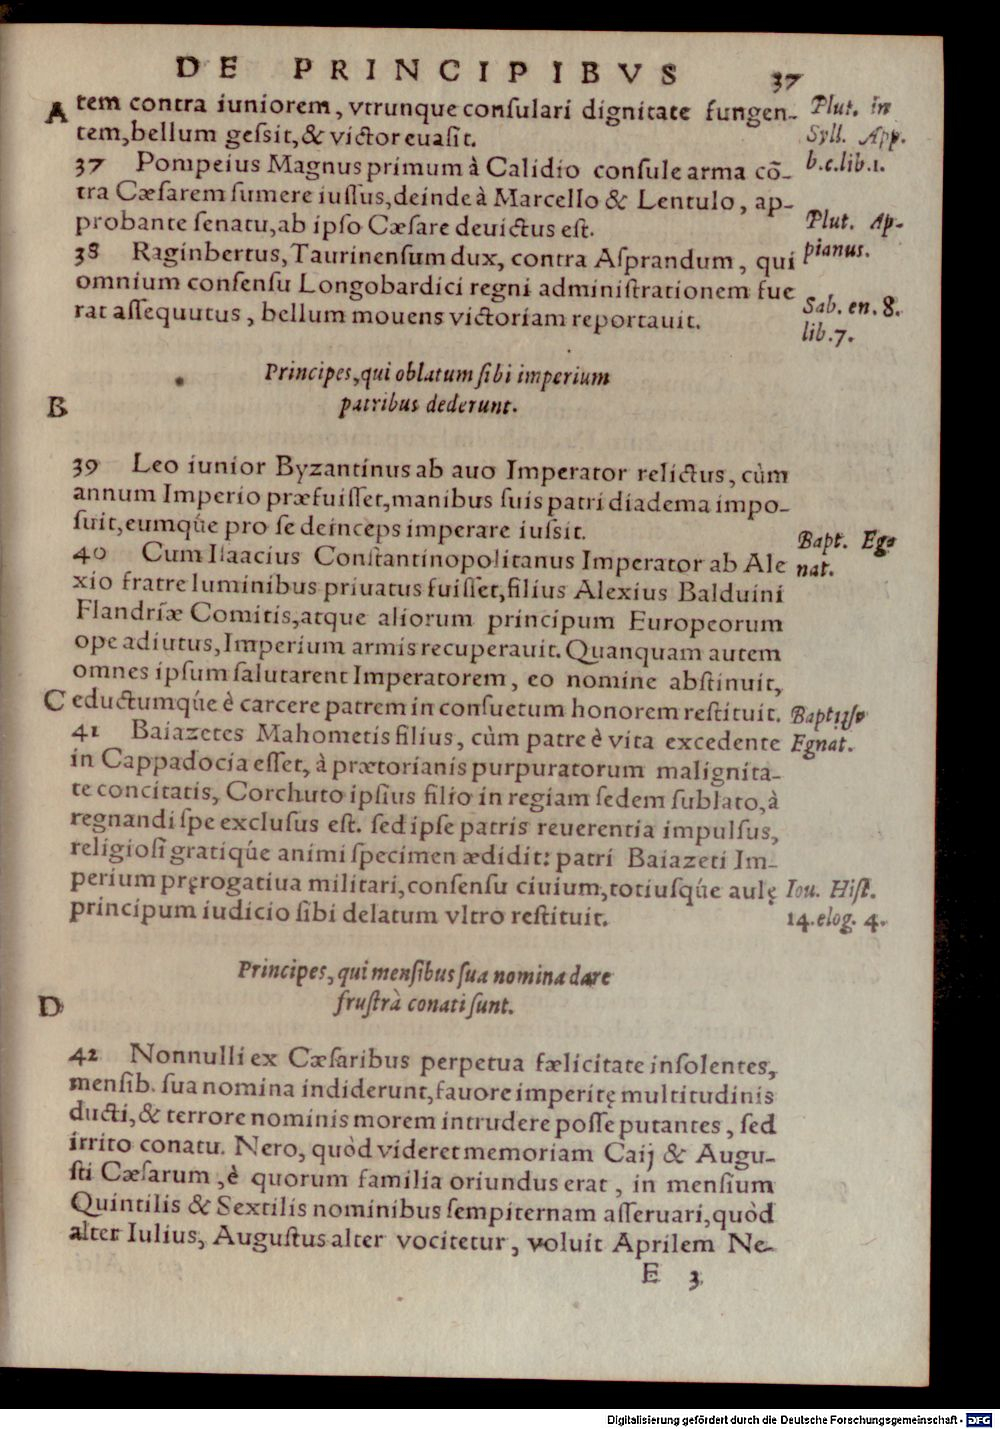 DE PRINCIPIBVS 37
A tem contra iuniorem, vtrunque consulari dignitate fungen- Plut. in
tem, bellum gessit, & victor euasit. Syll. App.
37 Pompeius Magnus primum à Calidio consule arma cō- b.c.lib.1.
tra Cæsarem sumere iussus, deinde à Marcello & Lentulo, ap-
probante senatu, ab ipso Cæsare deuictus est. Plut. Ap-
38 Raginbertus, Taurinensum dux, contra Asprandum, qui pianus.
omnium consensu Longobardici regni administrationem fue
rat assequutus, bellum mouens victoriam reportauit. Sab. en. 8.
lib. 7.
Principes, qui oblatum sibi imperium
B patribus dederunt.
39 Leo iunior Byzantinus ab auo Imperator relictus, cùm
annum Imperio præfuisset, manibus suis patri diadema impo-
suit, eumq́ue pro se deinceps imperare iussit. Bapt. Eg-
40 Cum Isaacius Constantinopolitanus Imperator ab Ale nat.
xio fratre luminibus priuatus fuisset, filius Alexius Balduini
Flandriæ Comitis, atque aliorum principum Europeorum
ope adiutus, Imperium armis recuperauit. Quanquam autem
omnes ipsum salutarent Imperatorem, eo nomine abstinuit,
C eductumq́ue è carcere patrem in consuetum honorem restituit. Baptist
41 Baiazetes Mahometis filius, cùm patre è vita excedente Egnat.
in Cappadocia esset, à prætorianis purpuratorum malignita-
te concitatis, Corchuto ipsius filio in regiam sedem sublato, à
regnandi spe exclusus est. sed ipse patris reuerentia impulsus,
religiosi gratiq́ue animi specimen ædidit: patri Baiazeti Im-
perium pręrogatiua militari, consensu ciuium, totiusq́ue aulę Iou. Hist.
principum iudicio sibi delatum vltro restituit. 14. elog. 4.
Principes, qui mensibus sua nomina dare
D frustrà conati sunt.
42 Nonnulli ex Cæsaribus perpetua fælicitate insolentes,
mensib. sua nomina indiderunt, fauore imperitę multitudinis
ducti, & terrore nominis morem intrudere posse putantes, sed
irrito conatu. Nero, quòd videret memoriam Caij & Augu-
sti Cæsarum, è quorum familia oriundus erat, in mensium
Quintilis & Sextilis nominibus sempiternam asseruari, quòd
alter Iulius, Augustus alter vocitetur, voluit Aprilem Ne-
E 3
Digitalisierung gefördert durch die Deutsche Forschungsgemeinschaft - DFG